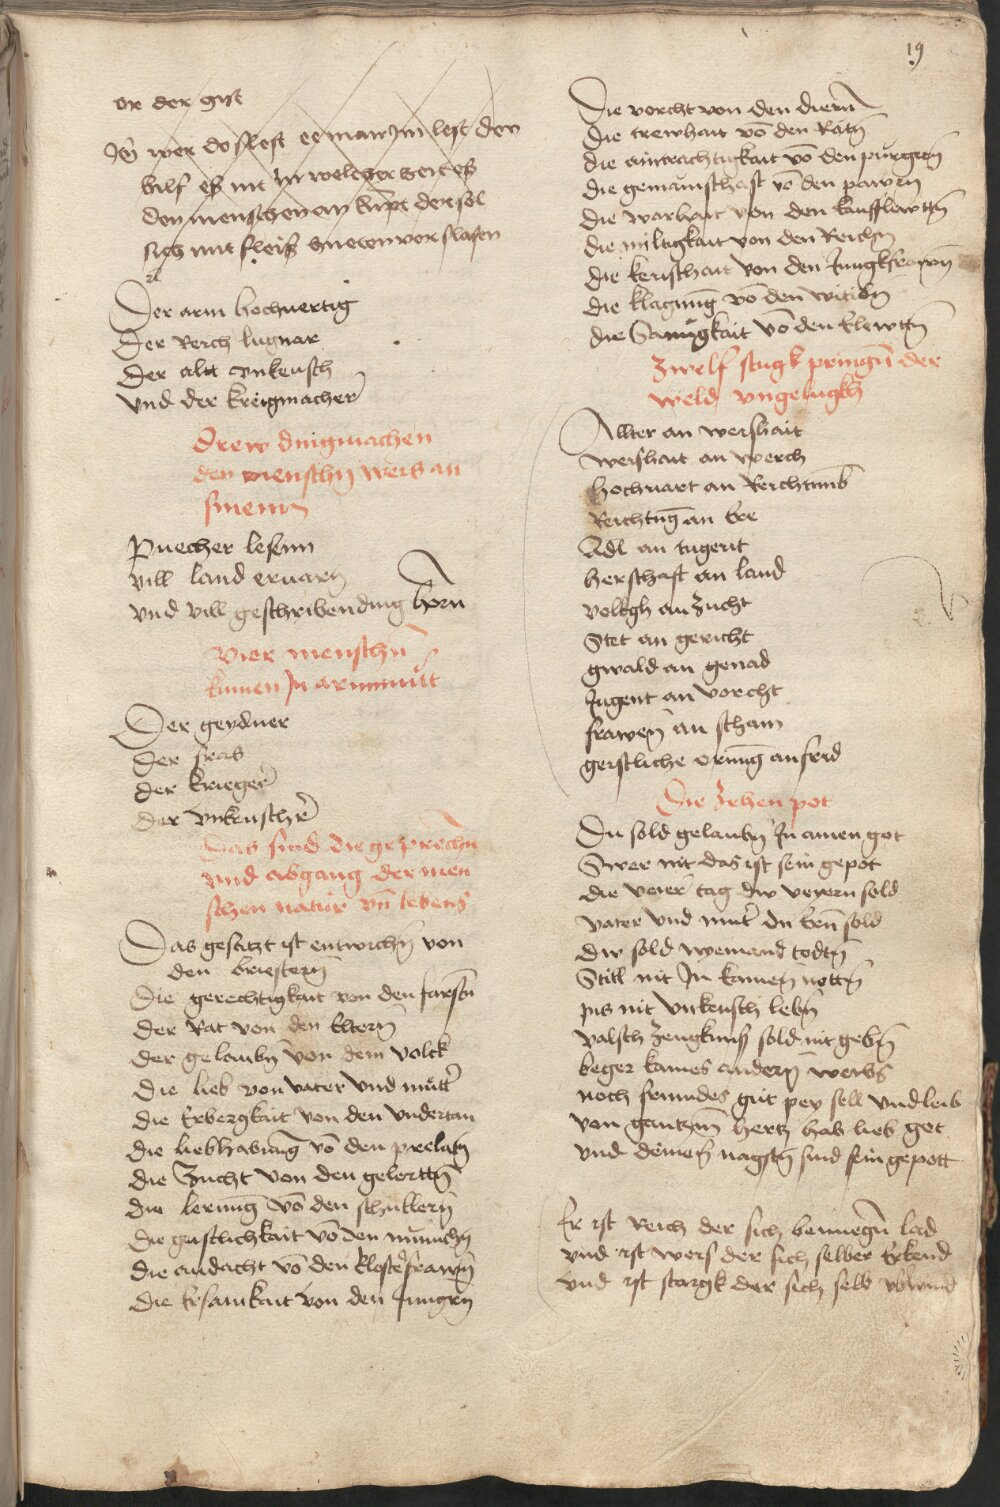 19
or der gist
Itm wer do slest ee man Im lest den
hilf eß nit In welicher zeit eß
den menschen an kumpt der sol
sich mit fleiß huetten vor slafen
Der arm hochuertig
Der Reich lugnar
Der alt vnkeusch
Vnd der kreigmacher
Drew ding machen
den menschn weis an
sinenn
Puecher lesenn
vill land eruarn
vnd vill geschribending horn
Vier menschn
kumen In armmutt
Der geyduer
der fras
der kriegerr
der vnkeuscher
Das sind die geprechn
vnd abgang der men
schen natur vn lebens
Das gesatzt ist entwichn von
den briestern
Die gerechtigkait von den farstn
der Rat von den Eltern
der gelaubn von dem volck
die lieb von vater vnd mutter
die Erbergkait von den vndertan
die liebhabung vo den prelatn
die Zucht von den gelerttn
die lernung vo den schullern
die gaistlichkait vo den munichn
die andacht vo den klosterfrawn
die Ersamkait von den Jungrn
Die vorcht von den diern
die trewhait vo den Ratn
die aintrachtigkait vo den purgern
die gemainschaft vo den pawrn
die warhait von den kaufflewttn
die miltigkait von den Reichn
die keuschait von den Jungkfrawn
die klagung vo den witibn
die Sanigkait vo den Elewttn
Zwelf stugk pringn der
weld vngelugkh
Allter an weishait
weishait an werch
hochuart an Reichtumb
Reichtug an Ere
Adl an tugent
herschaft an land
volkgh an Zucht
Stet an gericht
gwald an genad
Jugent an vorcht
frawen an scham
geistliche ornung an frid
Die Zehen pot
Du sold gelaubn In ainen got
Swer nit das ist sein gepot
die veier tag dw veyern sold
vater vnd muter du Ern sold
dw sold niemand todtn
Still nit In kainen nottn
pis nit vnkeusch lebn
valsch Zeugknus sold nit gebn
beger kaines andern weibs
noch freundes gut pey sell vnd leib
von gantzm hertz hab lieb got
vnd deinen nagstn sind sein gepott
Er ist Reich der sich benuegn lad
vnd ist weis der sich selber Erkend
vnd ist stargk der sich selb vbwind